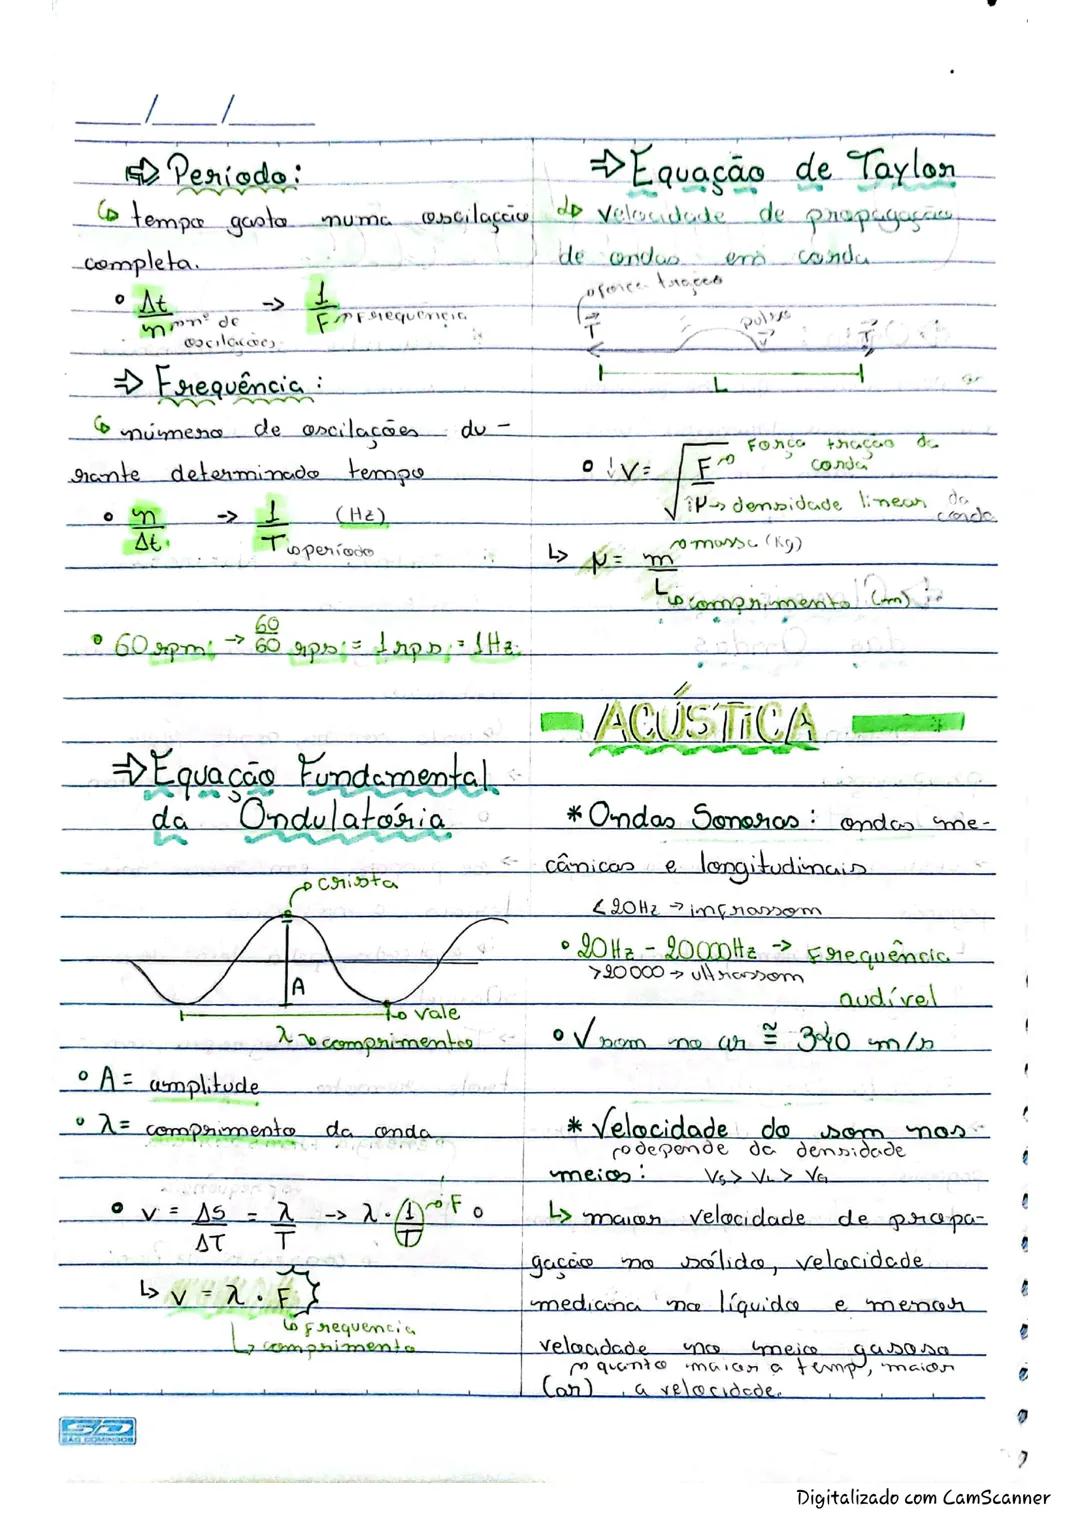 ___/___/___
⇒ Período:
↳ tempo gasto numa oscilação
completa.
• Δt/n → 1/F
nº de oscilações
Frequência
⇒ Frequência:
↳ número de oscilações du-
rante determinado tempo
• n/Δt → 1/T (Hz)
período
• 60 rpm → 60/60 rps = 1 rps = 1Hz
⇒ Equação Fundamental
da Ondulatória
crista
A
vale
λ comprimento
• A = amplitude
• λ = comprimento da onda
• v = ΔS/ΔT = λ/T → λ · (1/T) F
↳ v = λ · F
frequencia
comprimento
⇒ Equação de Taylor
velocidade de propagação
de ondas em corda
força tração
T pulso v T
L
• ↓v = √F/↑μ
Força tração da
corda
densidade linear da
corda
↳ μ = m/L
massa (kg)
comprimento (m)
ACÚSTICA
* Ondas Sonoras: ondas me-
cânicas e longitudinais
<20Hz → infrassom
• 20Hz - 20000Hz → Frequência
>20000 → ultrassom
audível
• V som no ar ≅ 340 m/s
* Velocidade do som nos
depende da densidade
meios: Vs > VL > VG
↳ maior velocidade de propa-
gação no sólido, velocidade
mediana no líquido e menor
velocidade no meio gasoso
quanto maior a temp, maior
(ar) a velocidade.
SD
SÃO DOMINGOS
Digitalizado com CamScanner